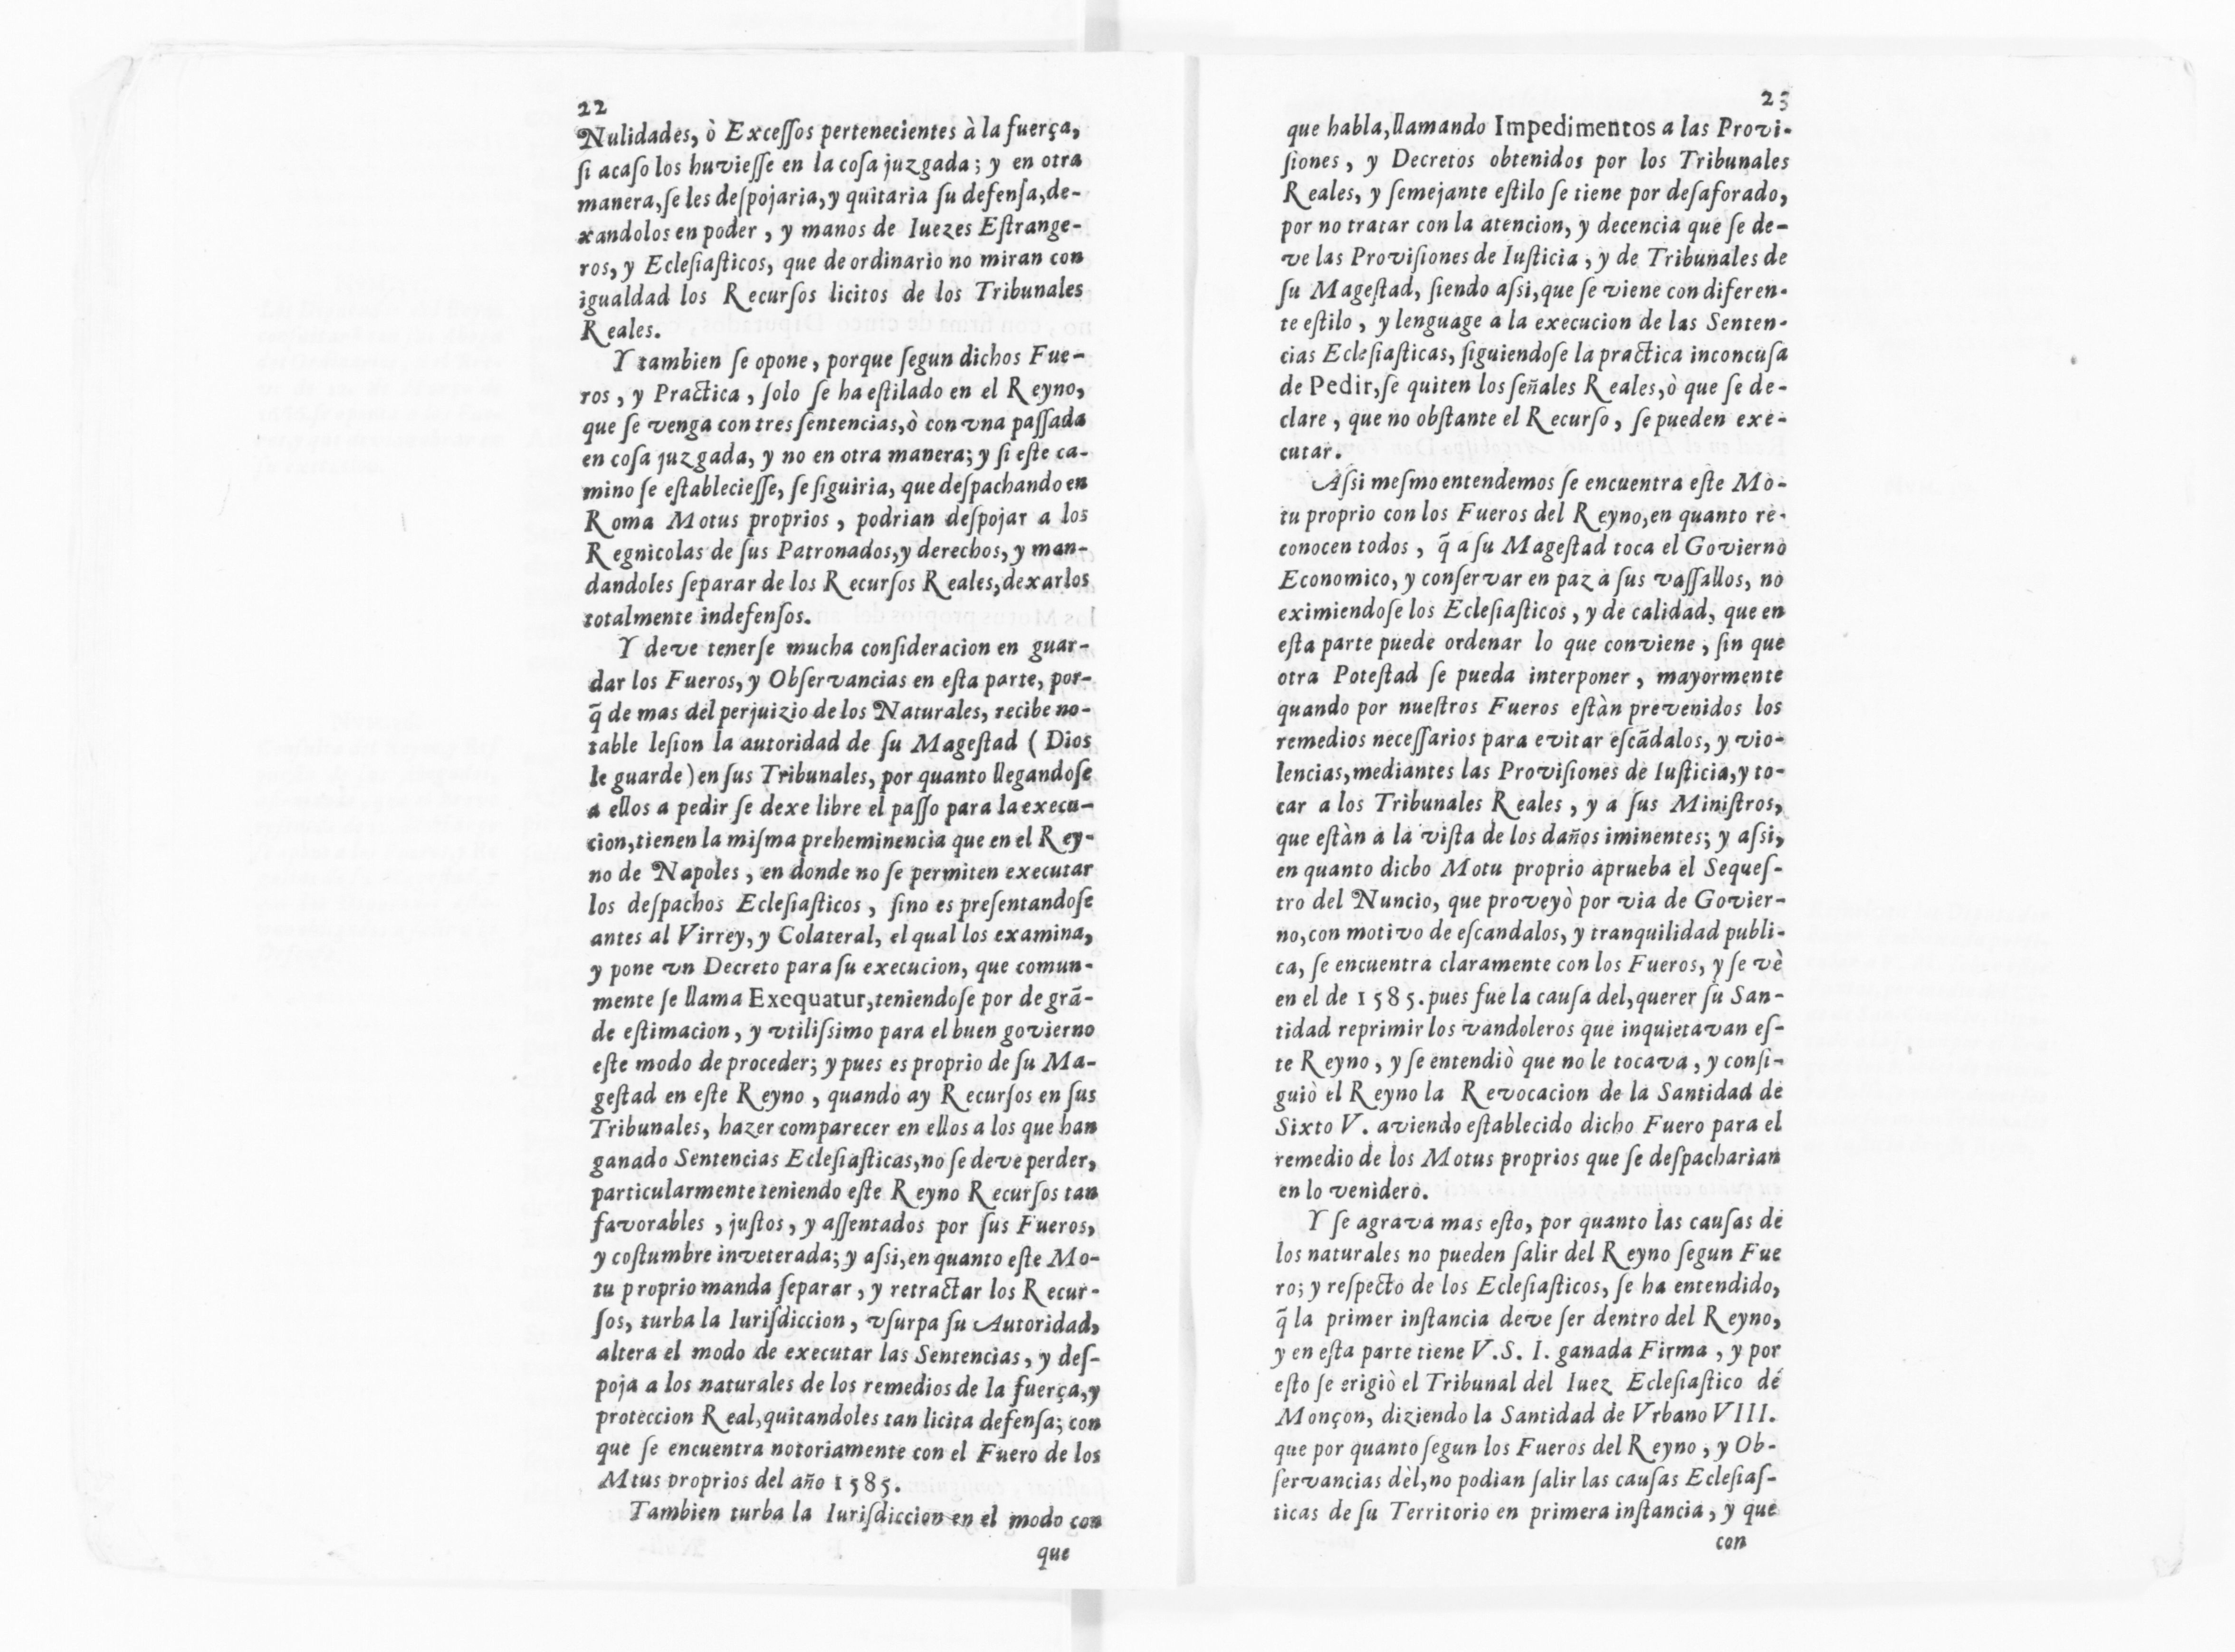 22
Nulidades, ò Exceſſos pertenecientes à la fuerça,
ſi acaſo los huvieſſe en la coſa juzgada; y en otra
manera, ſe les deſpojaria, y quitaria ſu defenſa, de-
xandolos en poder, y manos de Iuezes Eſtrange-
ros, y Ecleſiaſticos, que de ordinario no miran con
igualdad los Recurſos licitos de los Tribunales
Reales.
Y tambien ſe opone, porque ſegun dichos Fue-
ros, y Practica, ſolo ſe ha eſtilado en el Reyno,
que ſe venga con tres ſentencias, ò con vna paſſada
en coſa juzgada, y no en otra manera; y ſi eſte ca-
mino ſe eſtablecieſſe, ſe ſiguiria, que deſpachando en
Roma Motus proprios, podrian deſpojar a los
Regnicolas de ſus Patronados, y derechos, y man-
dandoles ſeparar de los Recurſos Reales, dexarlos
totalmente indefenſos.
Y deve tenerſe mucha conſideracion en guar-
dar los Fueros, y Obſervancias en eſta parte, por-
q̃ de mas del perjuizio de los Naturales, recibe no-
table leſion la autoridad de ſu Mageſtad ( Dios
le guarde ) en ſus Tribunales, por quanto llegandoſe
a ellos a pedir ſe dexe libre el paſſo para la execu-
cion, tienen la miſma preheminencia que en el Rey-
no de Napoles, en donde no ſe permiten executar
los deſpachos Ecleſiaſticos, ſino es preſentandoſe
antes al Virrey, y Colateral, el qual los examina,
y pone vn Decreto para ſu execucion, que comun-
mente ſe llama Exequatur, teniendoſe por de grã-
de eſtimacion, y vtiliſsimo para el buen govierno
eſte modo de proceder; y pues es proprio de ſu Ma-
geſtad en eſte Reyno, quando ay Recurſos en ſus
Tribunales, hazer comparecer en ellos a los que han
ganado Sentencias Ecleſiaſticas, no ſe deve perder,
particularmente teniendo eſte Reyno Recurſos tan
favorables, juſtos, y aſſentados por ſus Fueros,
y coſtumbre inveterada; y aſsi, en quanto eſte Mo-
tu proprio manda ſeparar, y retractar los Recur-
ſos, turba la Iuriſdiccion, vſurpa ſu Autoridad,
altera el modo de executar las Sentencias, y deſ-
poja a los naturales de los remedios de la fuerça, y
proteccion Real, quitandoles tan licita defenſa; con
que ſe encuentra notoriamente con el Fuero de los
Mtus proprios del año 1585.
Tambien turba la Iuriſdiccion en el modo con
que
23
que habla, llamando Impedimentos a las Provi-
ſiones, y Decretos obtenidos por los Tribunales
Reales, y ſemejante eſtilo ſe tiene por deſaforado,
por no tratar con la atencion, y decencia que ſe de-
ve las Proviſiones de Iuſticia, y de Tribunales de
ſu Mageſtad, ſiendo aſsi, que ſe viene con diferen-
te eſtilo, y lenguage a la execucion de las Senten-
cias Ecleſiaſticas, ſiguiendoſe la practica inconcuſa
de Pedir, ſe quiten los ſeñales Reales, ò que ſe de-
clare, que no obſtante el Recurſo, ſe pueden exe-
cutar.
Aſsi meſmo entendemos ſe encuentra eſte Mo-
tu proprio con los Fueros del Reyno, en quanto re-
conocen todos, q̃ a ſu Mageſtad toca el Govierno
Economico, y conſervar en paz a ſus vaſſallos, no
eximiendoſe los Ecleſiaſticos, y de calidad, que en
eſta parte puede ordenar lo que conviene, ſin que
otra Poteſtad ſe pueda interponer, mayormente
quando por nueſtros Fueros eſtàn prevenidos los
remedios neceſſarios para evitar eſcãdalos, y vio-
lencias, mediantes las Proviſiones de Iuſticia, y to-
car a los Tribunales Reales, y a ſus Miniſtros,
que eſtàn a la viſta de los daños iminentes; y aſsi,
en quanto dicho Motu proprio aprueba el Sequeſ-
tro del Nuncio, que proveyò por via de Govier-
no, con motivo de eſcandalos, y tranquilidad publi-
ca, ſe encuentra claramente con los Fueros, y ſe vè
en el de 1585. pues fue la cauſa del, querer ſu San-
tidad reprimir los vandoleros que inquietavan eſ-
te Reyno, y ſe entendiò que no le tocava, y conſi-
guiò el Reyno la Revocacion de la Santidad de
Sixto V. aviendo eſtablecido dicho Fuero para el
remedio de los Motus proprios que ſe deſpacharian
en lo venidero.
Y ſe agrava mas eſto, por quanto las cauſas de
los naturales no pueden ſalir del Reyno ſegun Fue
ro; y reſpecto de los Ecleſiaſticos, ſe ha entendido,
q̃ la primer inſtancia deve ſer dentro del Reyno,
y en eſta parte tiene V. S. I. ganada Firma, y por
eſto ſe erigiò el Tribunal del Iuez Ecleſiaſtico de
Monçon, diziendo la Santidad de Vrbano VIII.
que por quanto ſegun los Fueros del Reyno, y Ob-
ſervancias dèl, no podian ſalir las cauſas Ecleſiaſ-
ticas de ſu Territorio en primera inſtancia, y que
con